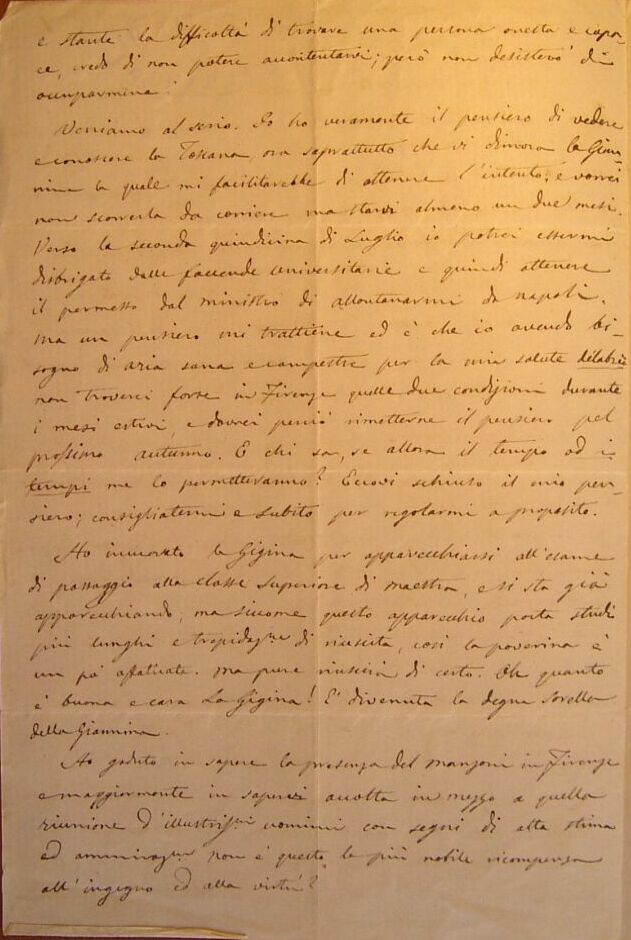 e stante la difficoltà di trovare una persona onesta e capa-
ce, credo di non potere accontentarvi; però non desisterò di
occuparmene.
Veniamo al serio. Io ho veramente il pensiero di vedere
e conoscere la Toscana, ora soprattutto che vi dimora la Gian-
nina la quale mi faciliterebbe di ottenere l'intento; e vorrei
non scorrerla da corriere ma starvi almeno un due mesi.
Verso la seconda quindicina di Luglio io potrei essermi
disbrigato dalle faccende universitarie e quindi ottenere
il permesso dal ministro di allontanarmi da Napoli.
Ma un pensiero mi trattiene ed è che io avendo bi-
sogno di aria sana e campestre per la mia salute délabrée
non troverei forse in Firenze quelle due condizioni durante
i mesi estivi, e dovrei perciò rimetterne il pensiero pel
prossimo autunno. E chi sa, se allora il tempo od i
tempi me lo permetteranno? Eccovi schiuso il mio pen-
siero; consigliatemi e subito per regolarmi a proposito.
Ho incuorato la Gigina per apparecchiarsi all'esame
di passaggio alla classe superiore di maestra, e si sta già
apparecchiando; ma siccome questo apparecchio porta studi
più lunghi e trepidaz.ne di riuscita, così la poverina è
un pò affaticata. Ma pure riuscirà di certo. Oh quanto
è buona e cara la Gigina! E' divenuta la degna sorella
della Giannina.
Ho goduto in sapere la presenza del Manzoni in Firenze
e maggiormente in sapervi accolta in mezzo a quella
riunione d'illustriss.mi uomini con segni di alta stima
ed ammiraz.ne non è questo la più nobile ricompensa
all'ingegno ed alla virtù?